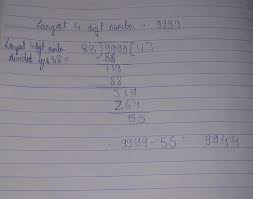 Largest 4 digit number = 9999
Largest 4 digit number
divided by 88 =
88)9999(113
88
119
88
319
264
55
= 9999-55 = 9944